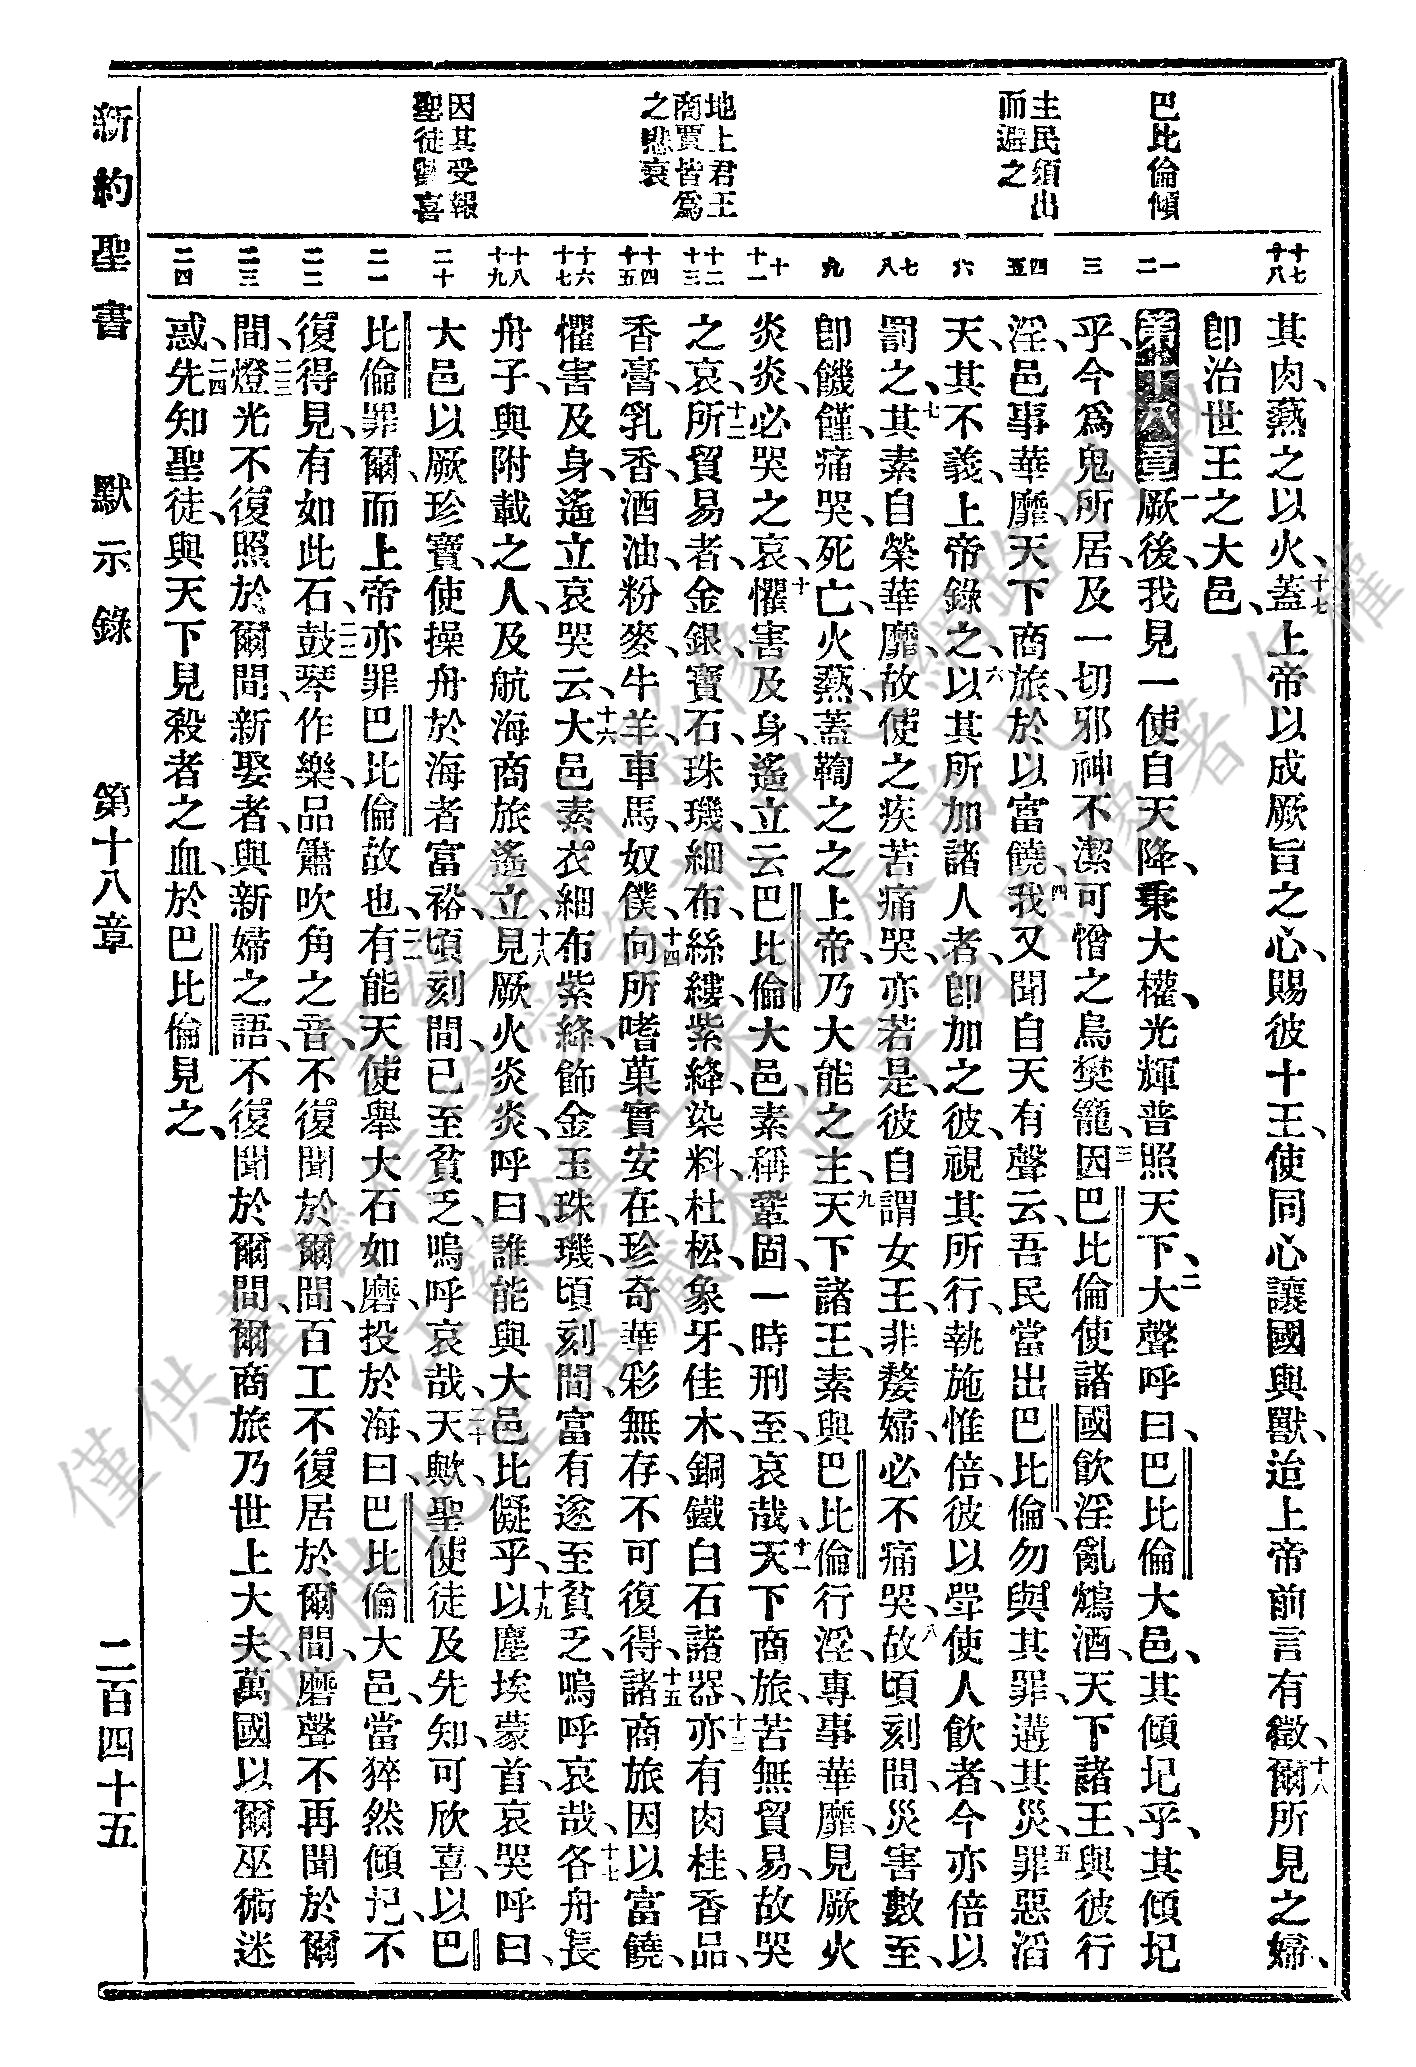 巴比倫傾
主民須出
而避之
地上君王
商賈皆爲
之悲哀
因其受報
聖徒歡喜
十七
十八
一
二
三
四
五
六
七
八
九
十
十一
十二
十三
十四
十五
十六
十七
十八
十九
二十
二一
二二
二三
二四
其肉、燕之以火、十七蓋上帝以成厥旨之心、賜彼十王、使同心讓國與獸、迨上帝前言有徵、十八爾所見之婦、
卽治世王之大邑、
第十八章一厥後、我見一使自天降、秉大權、光輝普照天下、二大聲呼曰、巴比倫大邑、其傾圮乎、其傾圮
乎、今爲鬼所居、及一切邪神不潔可憎之鳥樊籠、三因巴比倫使諸國飲淫亂鴆酒、天下諸王、與彼行
淫、邑事華靡、天下商旅、於以富饒、四我又聞自天有聲云、吾民當出巴比倫、勿與其罪、遘其災、五罪惡滔
天、其不義、上帝錄之、六以其所加諸人者、卽加之彼、視其所行、執施惟倍、彼以斝使人飲者、今亦倍以
罰之、七其素自榮華靡、故使之疾苦痛哭、亦若是、彼自謂女王、非嫠婦、必不痛哭、八故頃刻間、災害數至、
卽饑饉、痛哭、死亡、火燕、蓋鞫之之上帝、乃大能之主、九天下諸王、素與巴比倫行淫、專事華靡、見厥火
炎炎、必哭之哀、十懼害及身、遙立云、巴比倫大邑、素稱鞏固、一時刑至、哀哉、十一天下商旅、苦無貿易、故哭
之哀、十二所貿易者、金銀、寶石、珠璣、細布、絲縷、紫絳、染料、杜松、象牙、佳木、銅鐵白石諸器、十三亦有肉桂、香品、
香膏、乳香、酒油、粉麥、牛羊、車馬、奴僕、十四向所嗜菓實安在、珍奇華彩無存、不可復得、十五諸商旅因以富饒、
懼害及身、遙立哀哭云、十六大邑素衣細布紫絳、飾金玉珠璣、頃刻間、富有遂至貧乏、嗚呼哀哉、十七各舟長
舟子、與附載之人、及航海商旅遙立、十八見厥火炎炎、呼曰、誰能與大邑比儗乎、十九以塵埃蒙首、哀哭呼曰、
大邑以厥珍寶、使操舟於海者富裕、頃刻間、已至貧乏、嗚呼哀哉、二十天歟、聖使徒及先知、可欣喜、以巴
比倫罪爾、而上帝亦罪巴比倫故也、二一有能天使舉大石如磨、投於海、曰、巴比倫大邑、當猝然傾圮、不
復得見、有如此石、二二鼓琴作樂、品簫吹角之音、不復聞於爾間、百工不復居於爾間、磨聲不再聞於爾
間、二三燈光不復照於爾間、新娶者、與新婦之語、不復聞於爾間、爾商旅乃世上大夫、萬國以爾巫術迷
惑、二四先知聖徒、與天下見殺者之血、於巴比倫見之、
新約聖書 默示錄 第十八章 二百四十五